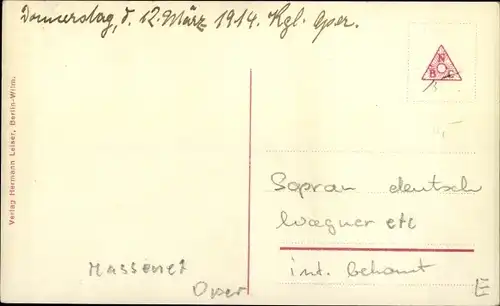 Donnerstag, d. 12. März 1914. Kgl. Oper.
N
B C
Verlag Hermann Leiser, Berlin-Wilm.
Sopran deutsch
Wagner etc
int. bekannt
Massenet
Oper
E